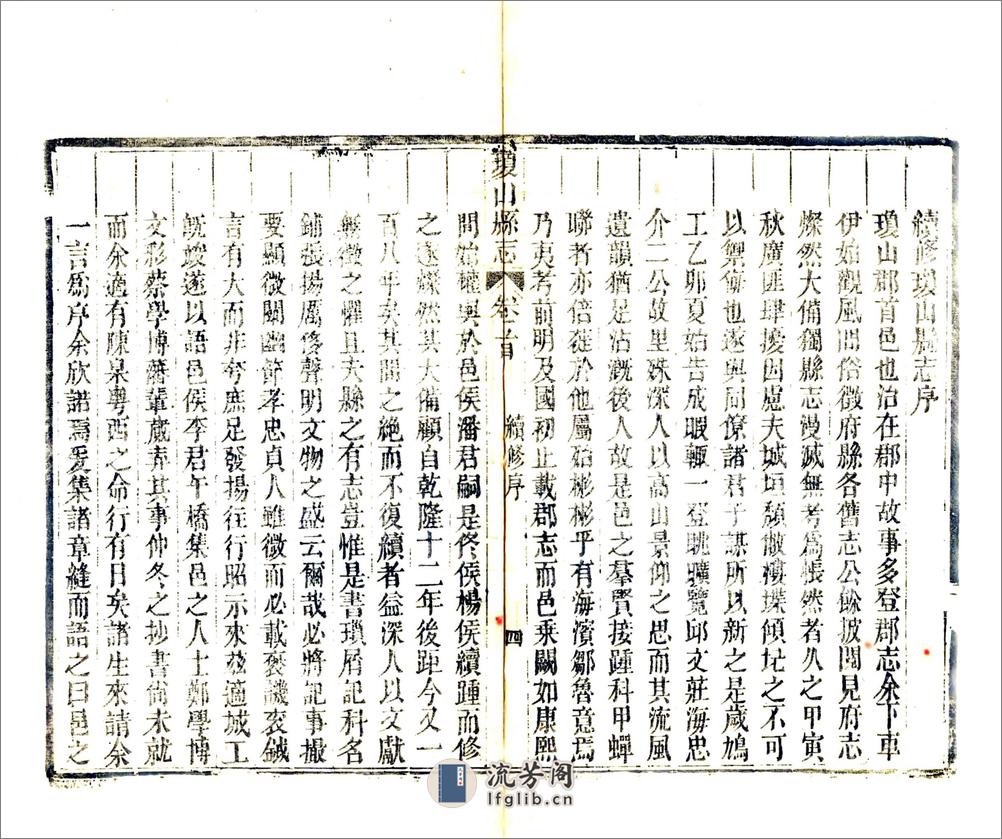 續修瓊山縣志序
瓊山郡首邑也治在郡中故事多登郡志余下車
伊始觀風問俗徵府縣各舊志公餘披閱見府志
燦然大備獨縣志漫滅無考爲悵然者久之甲寅
秋廣匪肆擾因慮夫城垣頹敝樓堞傾圮之不可
以禦侮也遂與同僚諸君子謀所以新之是歲鳩
工乙卯夏始告成暇輒一登眺曠覽邱文莊海忠
介二公故里殊深人以高山景仰之思而其流風
遺韻猶是沾溉後人故是邑之羣賢接踵科甲蟬
聯者亦倍蓰於他屬始彬彬乎有海濱鄒魯意焉
乃夷考前明及國初止載郡志而邑乘闕如康熙
瓊山縣志
卷首
續修序
四
間始權輿於邑侯潘君嗣是佟侯楊侯續踵而修
之遂燦然其大備顧自乾隆十二年後距今又一
百八年矣其間之絶而不復續者益深人以文獻
無徵之懼且夫縣之有志豈惟是書瑣屑記科名
鋪張揚厲侈聲明文物之盛云爾哉必將記事撮
要顯微闡幽節孝忠貞人雖微而必載褒譏衮鉞
言有大而非夸庶足發揚往行昭示來兹適城工
旣竣遂以語邑侯李君午橋集邑之人士鄭學博
文彩蔡學博藩輩蕆弄其事仲冬之抄書尙未就
而余適有陳臬粵西之命行有日矣諸生來請余
一言爲序余欣諾焉爰集諸章縫而語之曰邑之
流芳阁
lfglib.cn